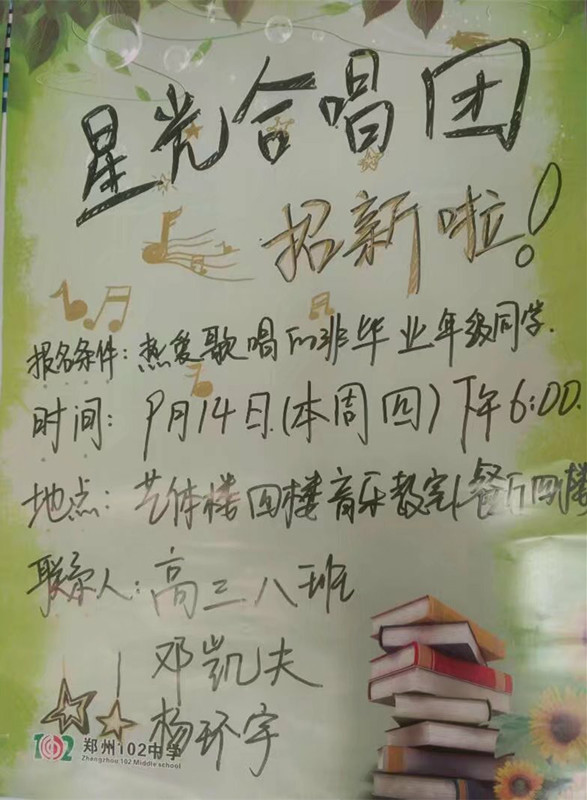 星光合唱团
招新啦！
报名条件：热爱歌唱的非毕业年级同学.
时间：9月14日.(本周四)下午6:00.
地点：艺体楼四楼音乐教室(餐厅四楼
联系人：高三八班
邓凯夫
杨环宇
102 郑州102中学
Zhengzhou 102 Middle school